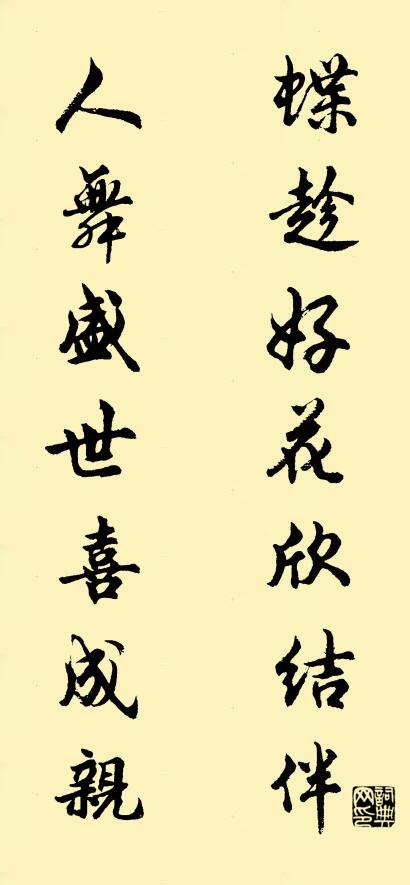 蝶趁好花欣结伴
人舞盛世喜成親
詞典网印